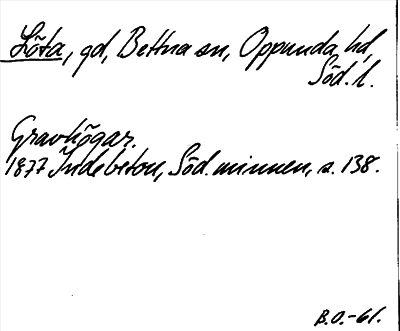 Löta, gd, Bettna sn, Oppunda hd,
Söd. l.
Gravhögar.
1877 Indebetou, Söd. minnen, s. 138.
B.O.-61.